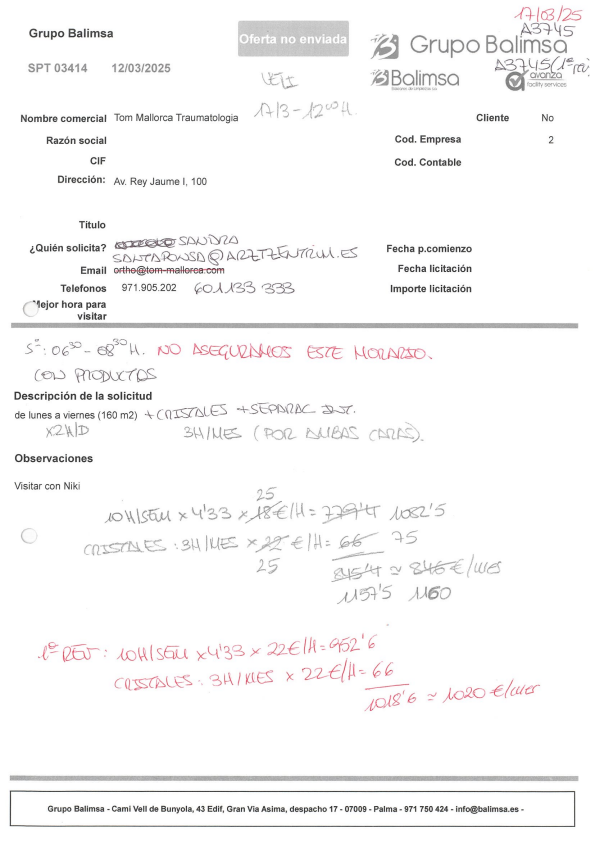 17/03/25
Grupo Balimsa
Oferta no enviada
A3745
Grupo Balimsa
SPT 03414 12/03/2025
A3745 (1ª rev)
Balimsa
avanza
facility services
17/3 - 12⁰⁰ H.
Nombre comercial Tom Mallorca Traumatologia
Cliente No
Razón social
Cod. Empresa 2
CIF
Cod. Contable
Dirección: Av. Rey Jaume I, 100
Título
¿Quién solicita? SANDRA
Fecha p.comienzo
SANTAPONSA@ARZTZENTRUM.ES
Email ortho@tom-mallorca.com
Fecha licitación
Telefonos 971.905.202 601133 333
Importe licitación
Mejor hora para
visitar
Sº: 06³⁰ - 08³⁰ H. NO ASEGURAMOS ESTE HORARIO.
CON PRODUCTOS
Descripción de la solicitud
de lunes a viernes (160 m2) + CRISTALES + SEPARAC INT.
x2H/D 3H/MES (POR AMBAS CARAS).
Observaciones
Visitar con Niki
25
10H/SEM x 4'33 x 18€/H = 779'4 1082'5
CRISTALES : 3H/MES x 22 €/H = 66 75
25 845'4 ≃ 846 €/MES
1157'5 1160
1ª REV : 10H/SEM x 4'33 x 22€/H = 952'6
CRISTALES : 3H/MES x 22€/H = 66
1018'6 ≃ 1020 €/MES
Grupo Balimsa - Cami Vell de Bunyola, 43 Edif, Gran Via Asima, despacho 17 - 07009 - Palma - 971 750 424 - info@balimsa.es -